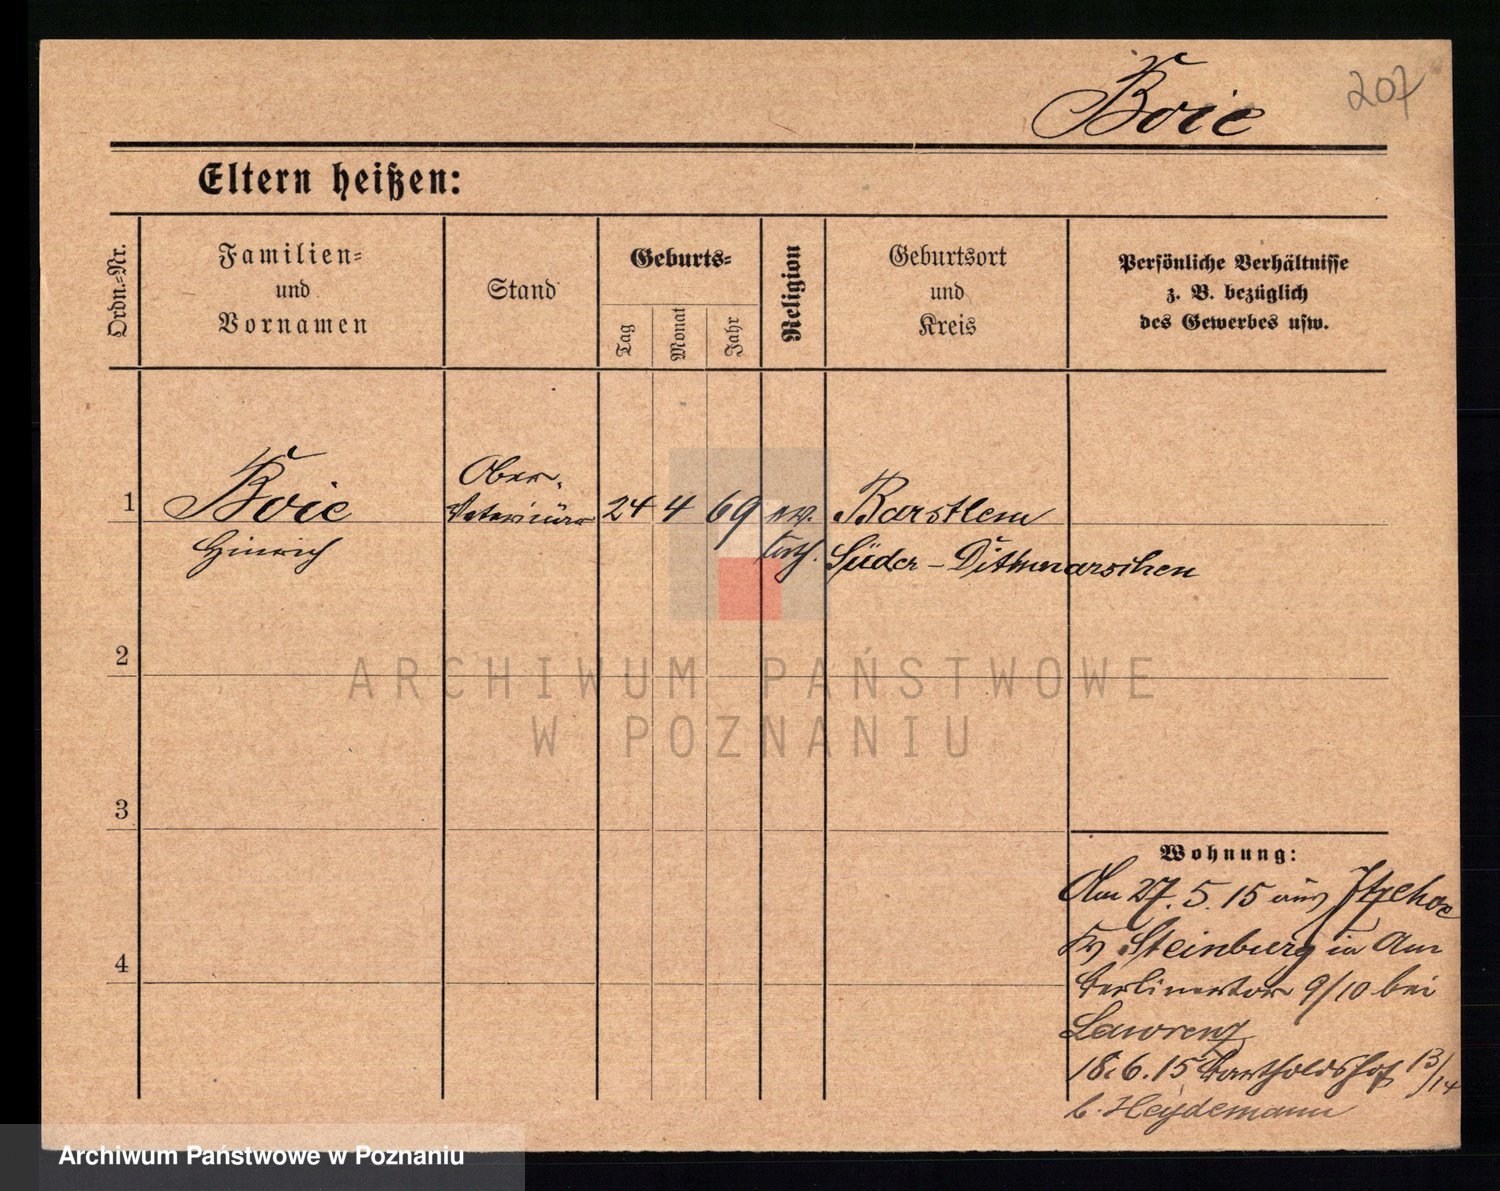 Boie
207
Eltern heißen:
Ordn.-Nr.
Familien-
und
Vornamen
Stand
Geburts-
Tag
Monat
Jahr
Religion
Geburtsort
und
Kreis
Persönliche Verhältnisse
z. B. bezüglich
des Gewerbes usw.
1
Boie
Hinrich
Ober-
Veterinär
24 4 69
ev.
luth.
Barsklem
Süder-Dithmarschen
2
ARCHIWUM PAŃSTWOWE
W POZNANIU
3
4
Wohnung:
Am 27.5.15 aus Itzehoe
Kr Steinburg in Am
Berlinertor 9/10 bei
Lawrenz
18.6.15 Bartholdshof 13/14
b. Heydemann
Archiwum Państwowe w Poznaniu